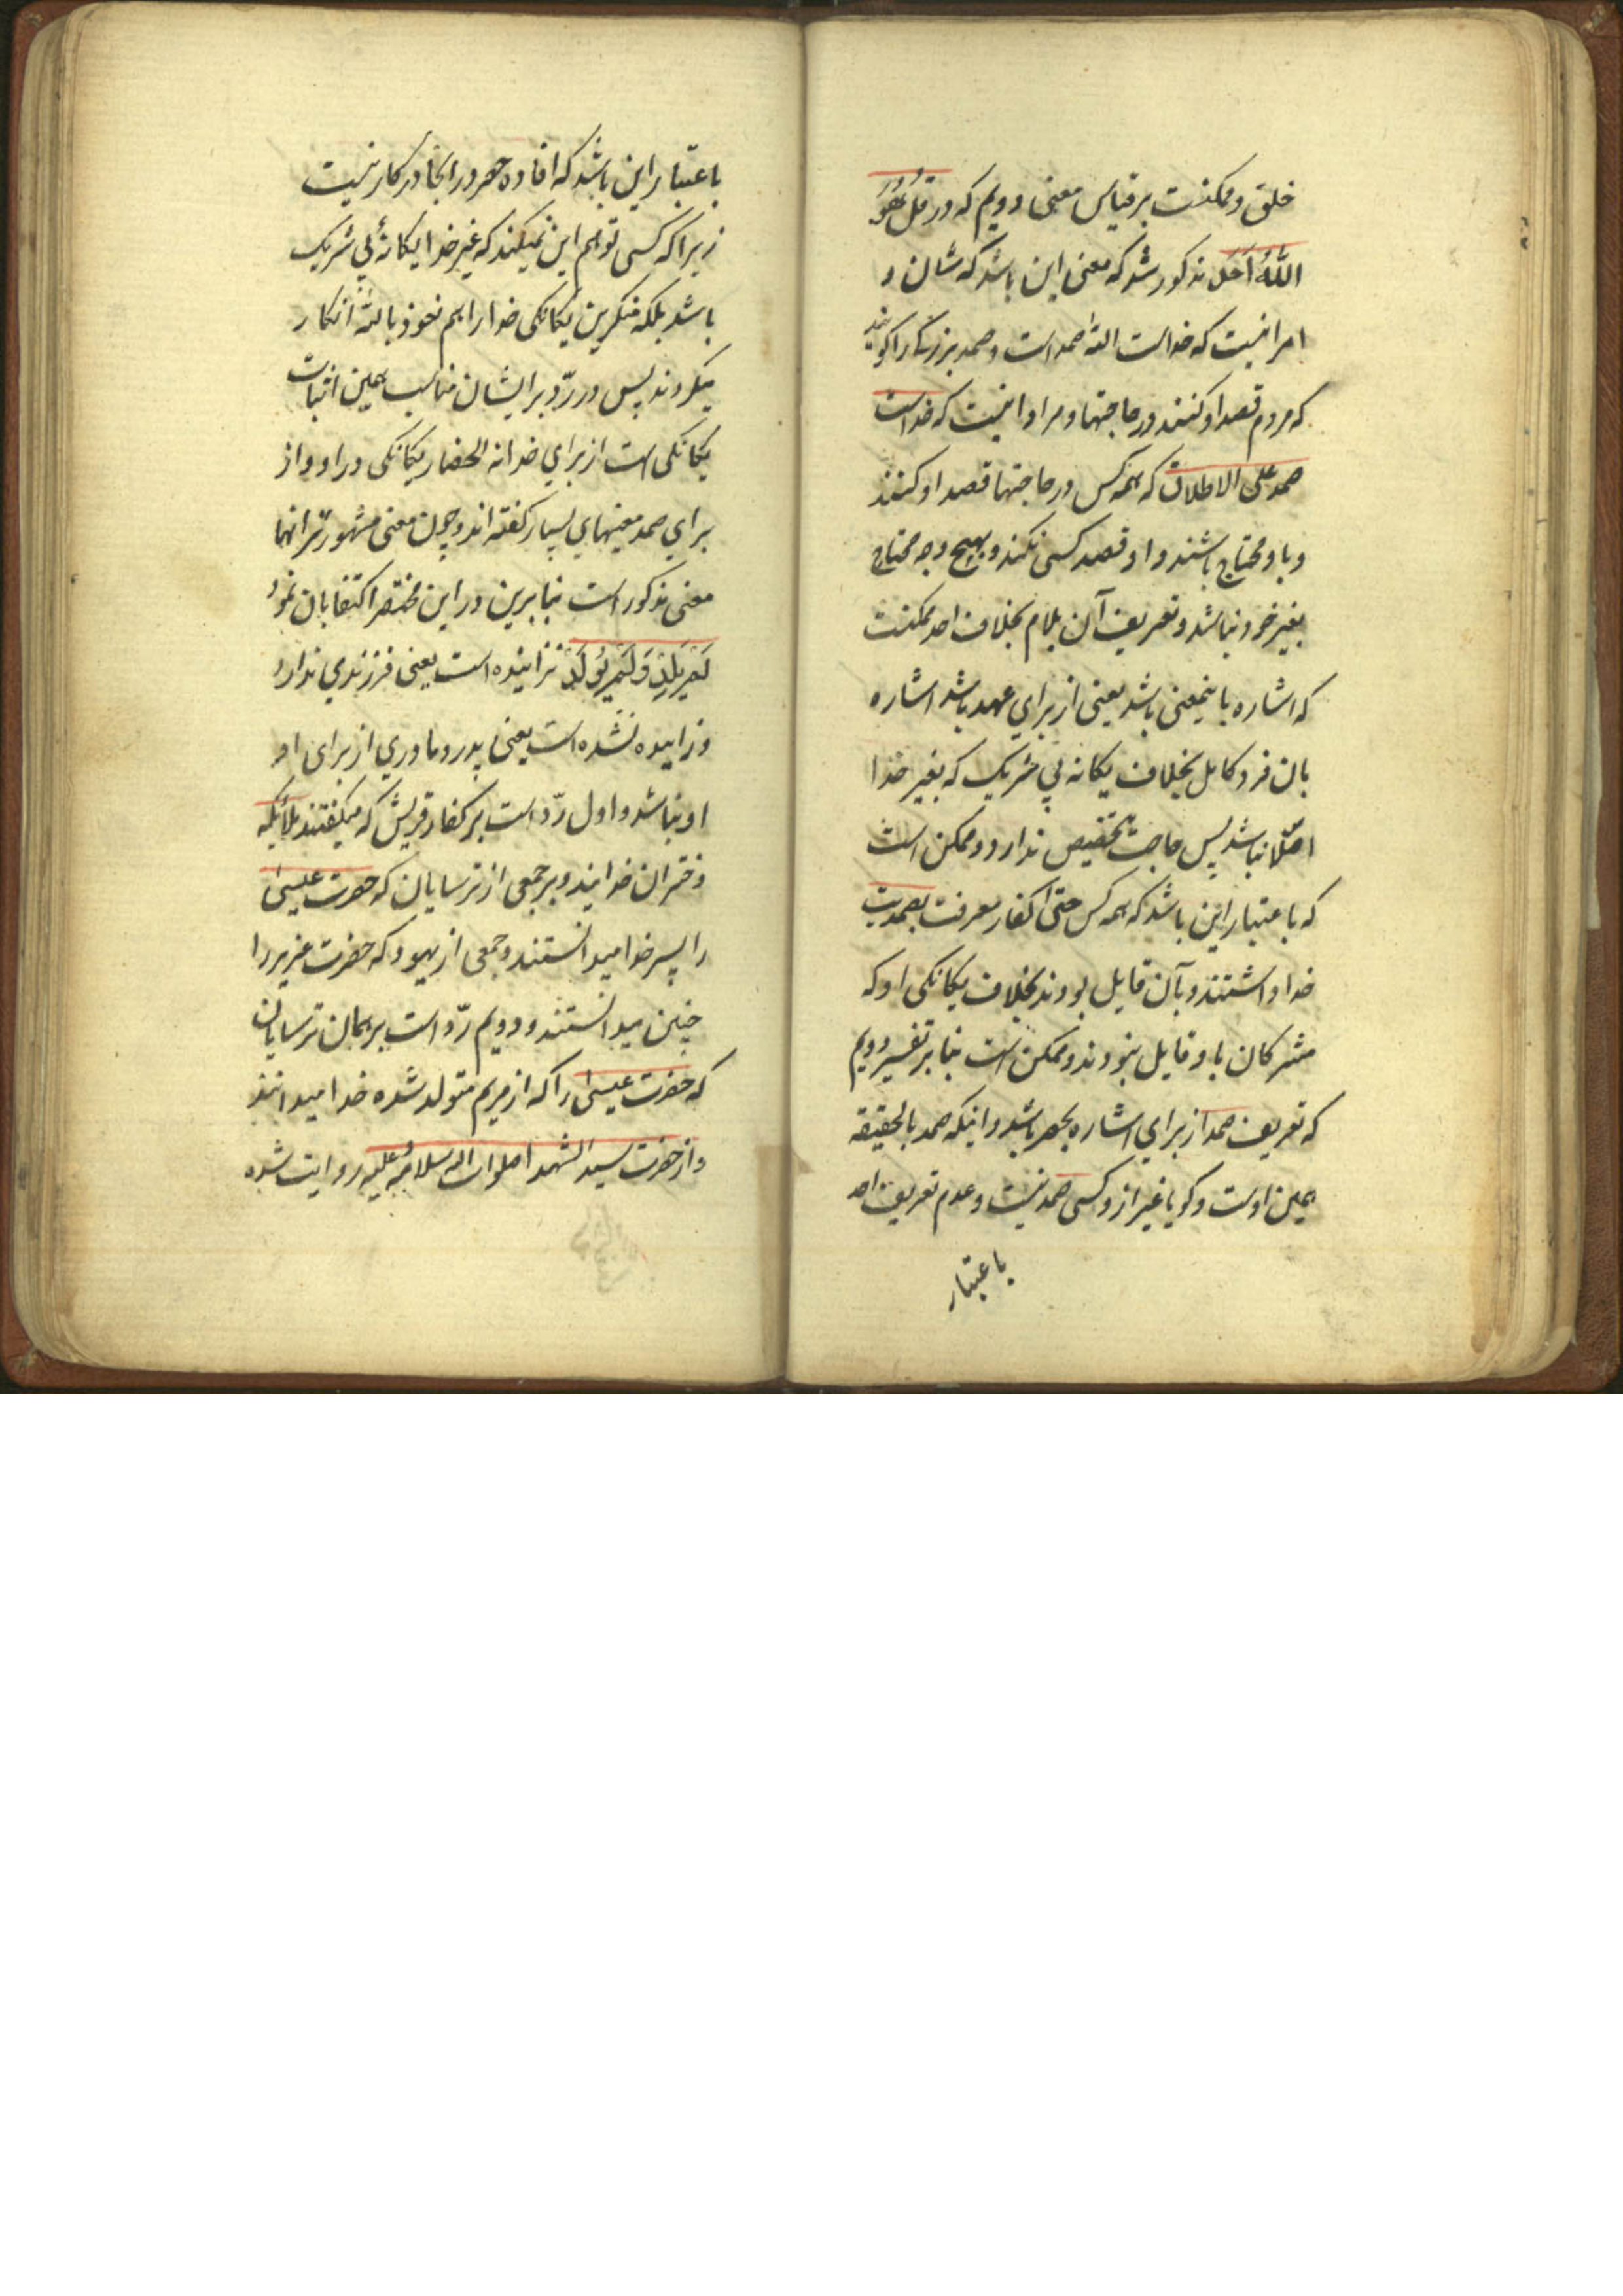 خلق و ممکنست بر قیاس معنی دویم که در قُل هُوَ
اللّٰهُ اَحَد مذکور شد که معنی این باشد که شان و
امر اینست که خداست اللّٰه صمد است و صمد بزرگی را گویند
که مردم قصد او کنند در حاجتها و مراد اینست که خداست
صمد علی الاطلاق که همه کس در حاجتها قصد او کنند
و باو محتاج باشند و او قصد کسی نکند و بهیچ وجه محتاج
بغیر خود نباشد و تعریف آن بلام بخلاف احد ممکنست
که اشاره باینمعنی باشد یعنی از برای عهد باشد اشاره
بان فرد کامل بخلاف یکانه بی شریک که بغیر خدا
اصلا نباشد پس حاجت بتخصیص ندارد و ممکن است
که باعتبار این باشد که همه کس حتی کفار معرفت بصمدیت
خدا داشتند و بآن قایل بودند بخلاف یکانکی او که
مشرکان باو قایل نبودند و ممکن است بنا بر تفسیر دویم
که تعریف صمد از برای اشاره بحصر باشد و اینکه صمد بالحقیقه
همین اوست و کویا غیر از و کسی صمد نیست و عدم تعریف احد
باعتبار
باعتبار این باشد که افاده حصر در اینجا در کار نیست
زیرا که کسی توهم این نمیکند که غیر خدا یکانۀ بی شریک
باشد بلکه منکرین یکانکی خدا را هم نعوذ باللّٰه انکار
میکردند پس در ردّ بر ایشان مناسب همین اثبات
یکانکی است از برای خدا نه انحصار یکانکی در او و از
برای صمد معنیهای بسیار کفته اند و چون معنی مشهورتر انها
معنی مذکور است بنابرین در این مختصر اکتفا بان نمود
لَم یَلِد وَلَم یُولَد نزاییده است یعنی فرزندی ندارد
و زاییده نشده است یعنی پدر و مادری از برای او
او نباشد و اول ردّ است بر کفار قریش که میکفتند ملائکه
دختران خدایند و بر جمعی از ترسایان که حضرت عیسی
را پسر خدا میدانستند و جمعی از یهود که حضرت عزیر را
چنین میدانستند و دویم ردّ است بر همان ترسایان
که حضرت عیسی را که از مریم متولد شده خدا میدانند
و از حضرت سید الشهدا صلوات اللّٰه و سلامه علیه روایت شده